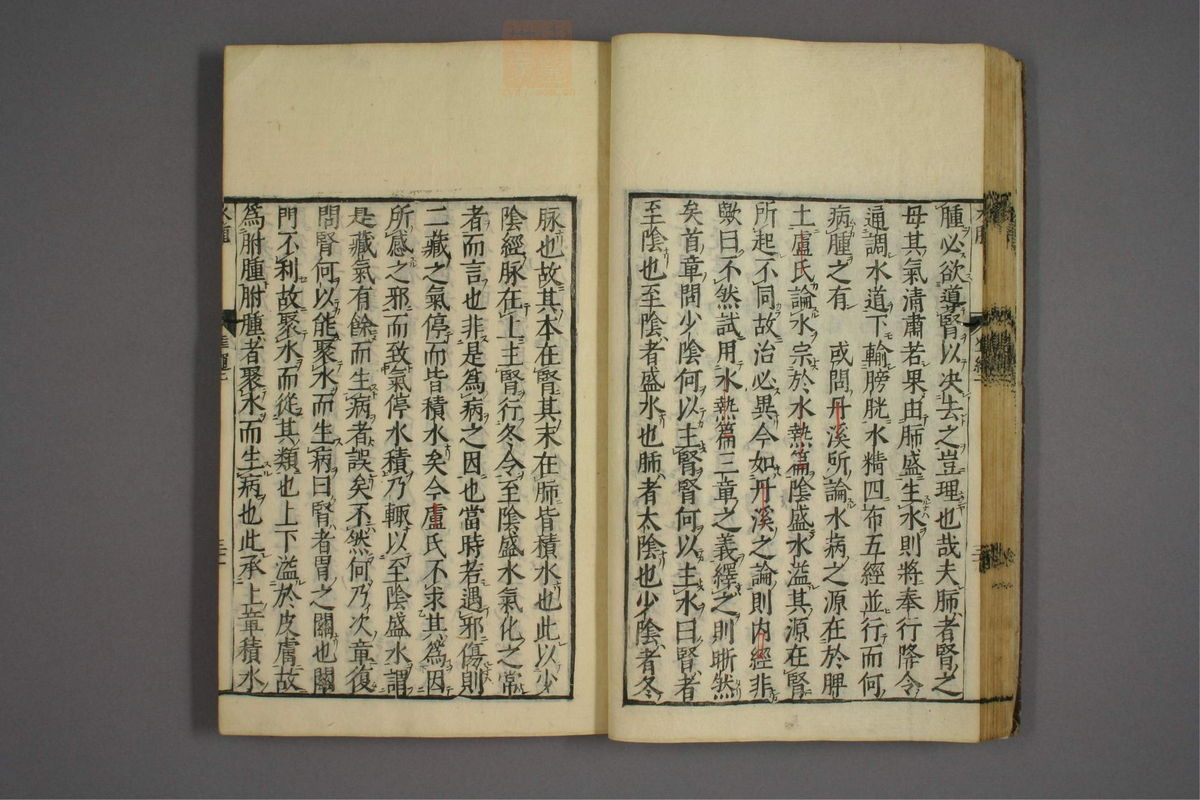 腫必欲導腎以決去之豈理也哉夫肺者腎之
母其氣清肅若果由肺盛生水則將奉行降令
通調水道下輸膀胱水精四布五經並行而何
病腫之有　或問丹溪所論水病之源在於脾
土盧氏論水宗於水熱篇陰盛水溢其源在腎
所起不同故治必異今如丹溪之論則内經非
歟曰不然試用水熱篇三章之義繹之則晰然
矣首章問少陰何以主腎腎何以主水曰腎者
至陰也至陰者盛水也肺者太陰也少陰者冬
脉也故其本在腎其末在肺皆積水也此以少
陰經脉在上主腎行冬令至陰盛水氣化之常
者而言也非是為病之因也當時若遇邪傷則
二藏之氣停而皆積水矣今盧氏不求其為因
所感之邪而致氣停水積乃輙以至陰盛水謂
是藏氣有餘而生病者誤矣不然何乃次章復
問腎何以能聚水而生病曰腎者胃之關也關
門不利故聚水而從其類也上下溢於皮膚故
爲胕腫胕腫者聚水而生病也此承上章積水